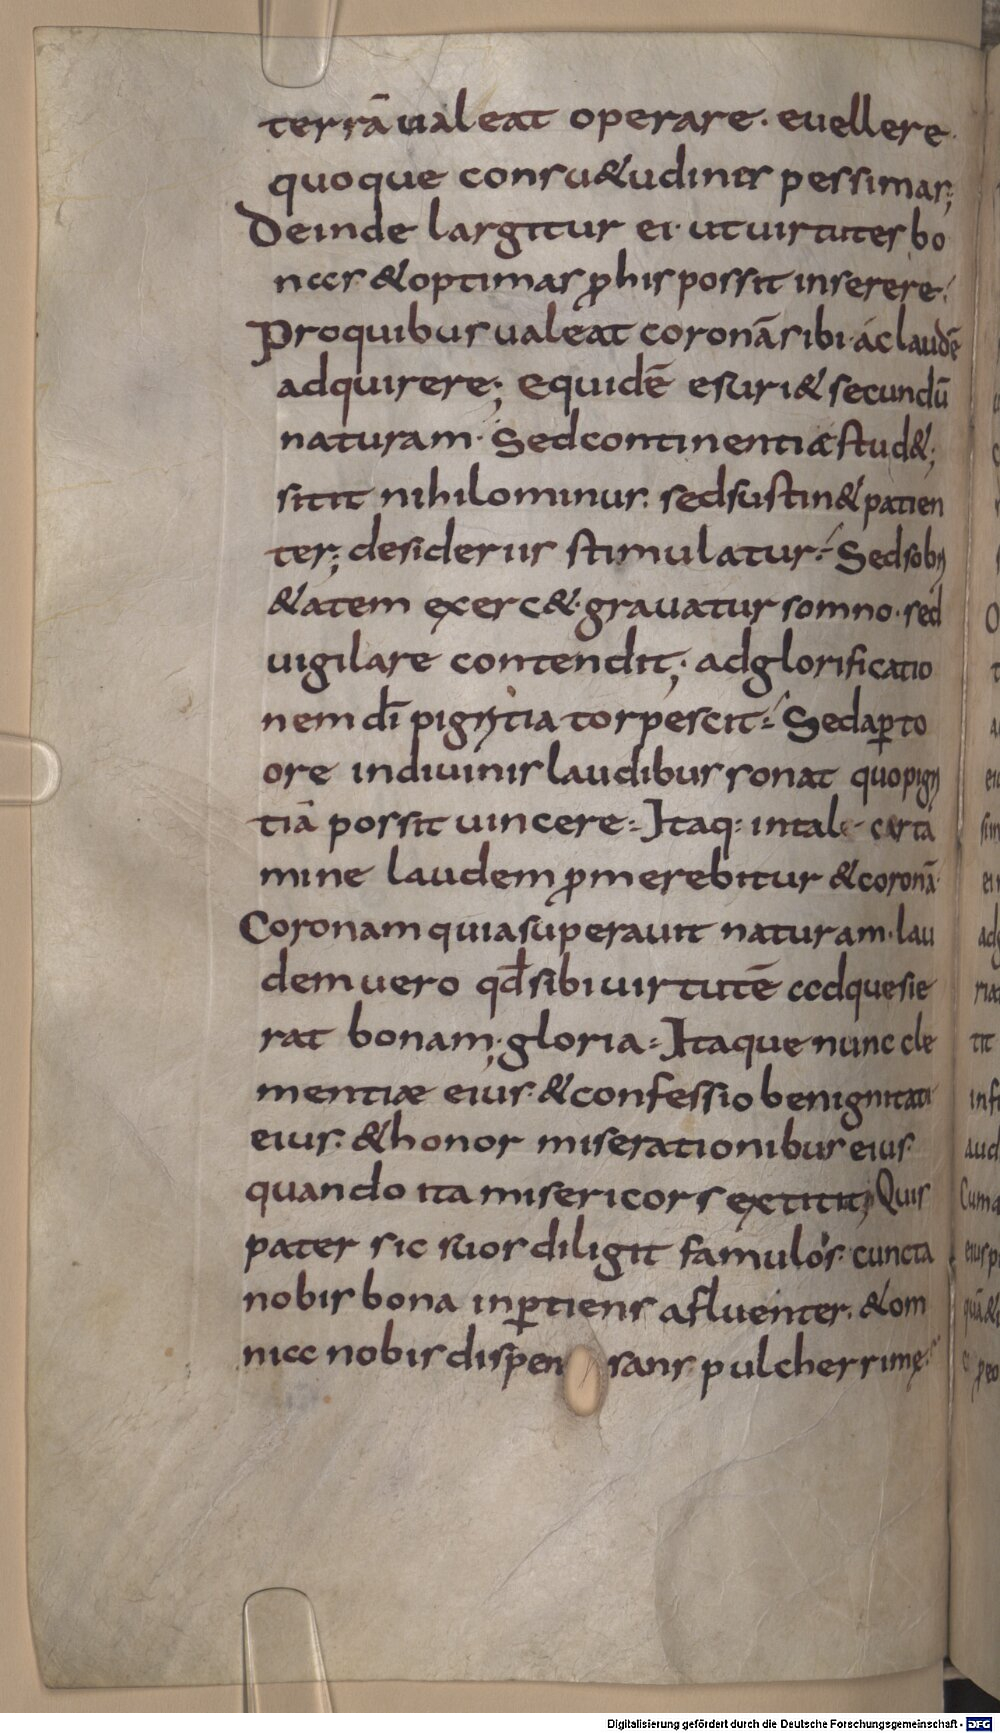 terrā ualeat operare. euellere
quoque consu&udines pessimas;
Deinde largitur ei. ut uirtutes bo
nas & optimas p̱his possit inserere.
Pro quibus ualeat coronā sibi. ac laudē
adquirere; Equidē esuri& secundū
naturam. Sed continentiæ stud&;
sitit nihilominus. sed sustin& patien
ter; desideriis stimulatur. Sed sobri
&atem exerc&. grauatur somno. sed
uigilare contendit; ad glorificatio
nem dī pigritia torpescit. Sed aꝑto
ore in diuinis laudibus sonat quo pigri
tiā possit uincere. Itaq: in tale certa
mine laudem ꝓmerebitur & coronā.
Coronam quia superauit naturam. lau
dem uero qđ sibi uirtutē adquesie
rat bonam; gloria. Itaque nunc cle
mentiæ eius. & confessio benignitati
eius. & honor miserationibus eius.
quando ita misericors extitit; Quis
pater sic suos diligit famulos. cuncta
nobis bona inꝑtiens afluenter. & om
nia nobis dispen sans pulcherrimę.
Digitalisierung gefördert durch die Deutsche Forschungsgemeinschaft - DFG